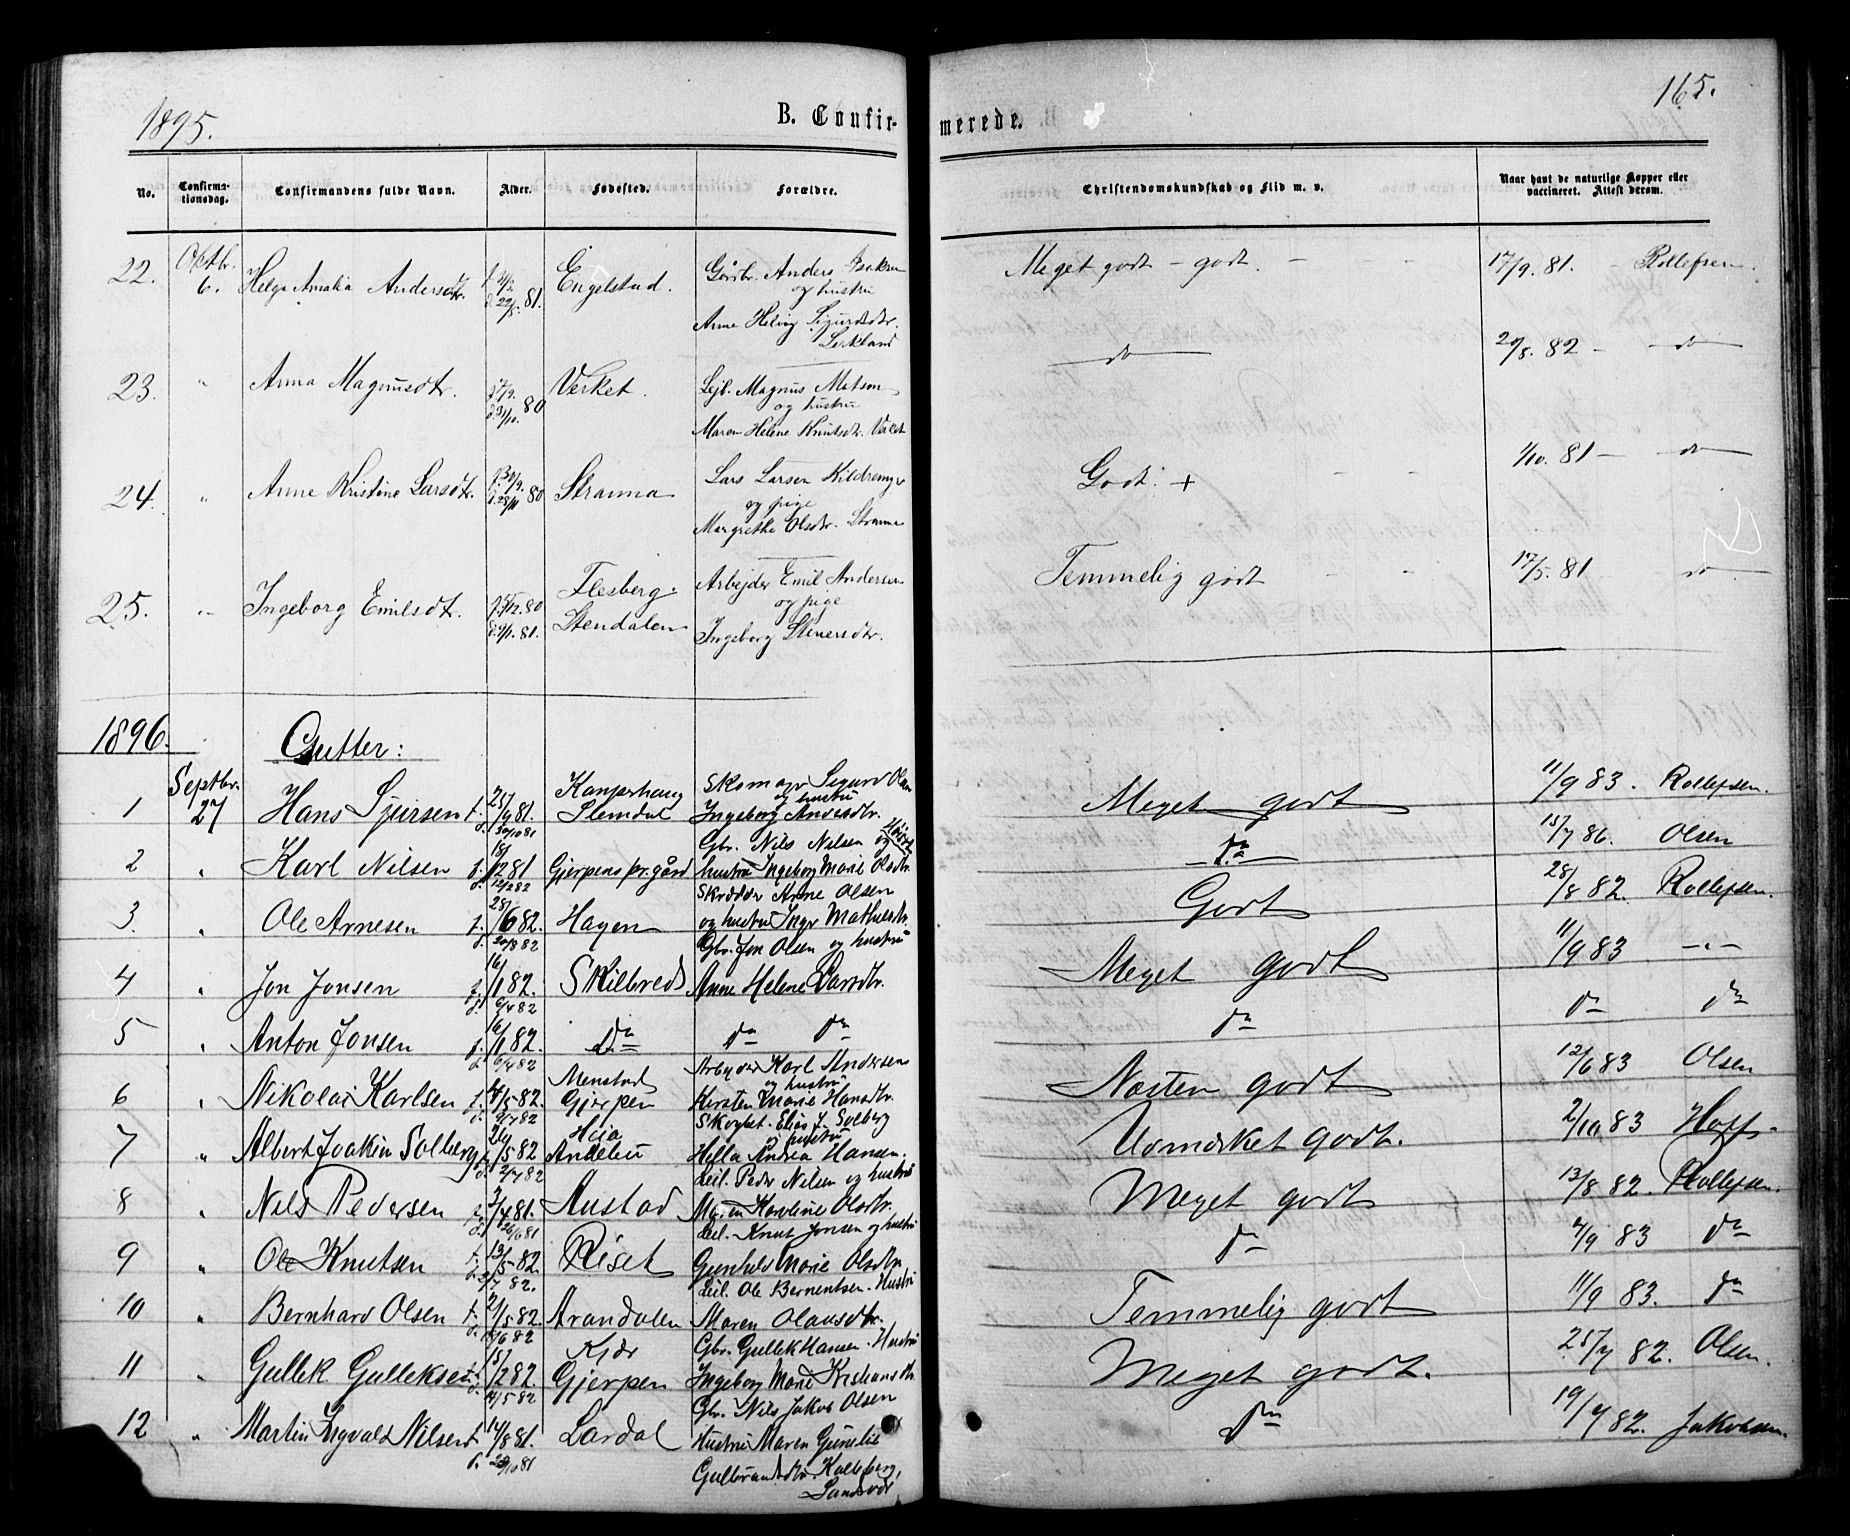 1895.
B. Confir-
merede.
165.
No.
Confirma-
tionsdag.
Confirmandens fulde Navn.
Alder.
Fødested.
Forældre.
Christendomskundskab og Flid m. v.
Naar havt de naturlige Kopper eller
vaccineret. Attest derom.
22. Oktbr. 6. Helga Amalia Andersdtr. d. 22/5 81. Engelstad. Gårdbr. Anders Isaksen
og hustru
Anne Helvig Sigurdsdtr.
Meget godt - godt. - - 17/9. 81. - Rollefsen.
23. " Anna Magnusdtr. f. 7/9. d. 31/10. 80 Verket. Lejl. Magnus Matson
og hustru
Maren Helene Knutsdtr.
do 29/8. 82 - do
24. " Anne Kristine Larsdtr. f. 30/9. d. 28/11 80 Stranna Lars Larsen
og pige
Margrethe Olsdtr. Stranna
Godt. + - - 1/10. 81 - do
25. " Ingeborg Emilsdtr. 80 d. 9/1. 81. Flesberg.
Stendalen
Arbejder Emil Andersen
og pige
Ingeborg Stenersdtr.
Temmelig godt - - 17/5. 81 do
1896. Gutter:
1 Septbr. 27 Hans Sjursen f. 25/9 81. d. 30/10 81 Slemdal Skomager Sigurd Olsen
og hustru
Ingeborg Andersdtr.
Meget godt 11/9 83. Rollefsen.
2 " Karl Nilsen f. 18/12 81 d. 12/2 82 Gjerpens pr.gård Gbr. Nils Nilsen og
hustru Ingeborg Marie Olsdtr.
do 15/7 86. Olsen
3. " Ole Arnesen f. 25/6 82. d. 20/8 82 Hagen Skrædder Arne Olsen
og hustru Inger Mathisdtr.
Godt 28/8 82. Rollefsen.
4 " Jon Jonsen f. 16/1 82. d. 6/4 82 Skilbred Gbr. Jon Olsen og hustru
Anne Helene Larsdtr.
Meget godt 11/9 83 -"-
5 " Anton Jonsen f. 16/1 82. d. 6/4 82 do do do
do do do
6 " Nikolai Karlsen f. 82. d. 9/7 82 Menstad
Gjerpen
Arbejder Karl Andersen
og hustru
Kirsten Marie Hansdtr.
Næsten godt 12/6 83 Olsen
7 " Albert Joakim Solberg f. 26/5 82 d. 2/7 82 Heia
Andebu
Elias J. Solberg
og hustru
Hella Andrea Hansen.
Udmærket godt. 2/10 83 Hoff.
8 " Nils Pedersen f. 3/4 81. d. 26/6 81 Austad Leil. Peder Nilsen og hustru
Maren Karoline Olsdtr.
Meget godt 13/8 82. Rollefsen.
9 " Ole Knutsen f. 13/5 82. d. 2/7 82. Riset Leil. Knut Jonsen og hustru
Gunhild Marie Olsdtr.
do 4/9 83 do
10 " Bernhard Olsen f. 2/5 82. d. 82 Arandalen Leil. Ole Berntsen. Hustru
Maren Olausdtr.
Temmelig godt 11/9 83. do
11 " Gullek Gulleksen f. 15/2 82. d. 14/5 82 Kjær
Gjerpen
Gbr. Gullek Hansen. Hustru
Ingeborg Marie Kristiansdtr.
Meget godt. 25/7 82. Olsen.
12 " Martin Ingvald Nilsen f. 14/8 81. d. 23/10 81 Lardal Gbr. Nils Jakob Olsen
Hustru Maren Gunelie
Gulbrandsdtr. Kolleberg,
Sandsvær
do 19/7 82. Jakobsen.